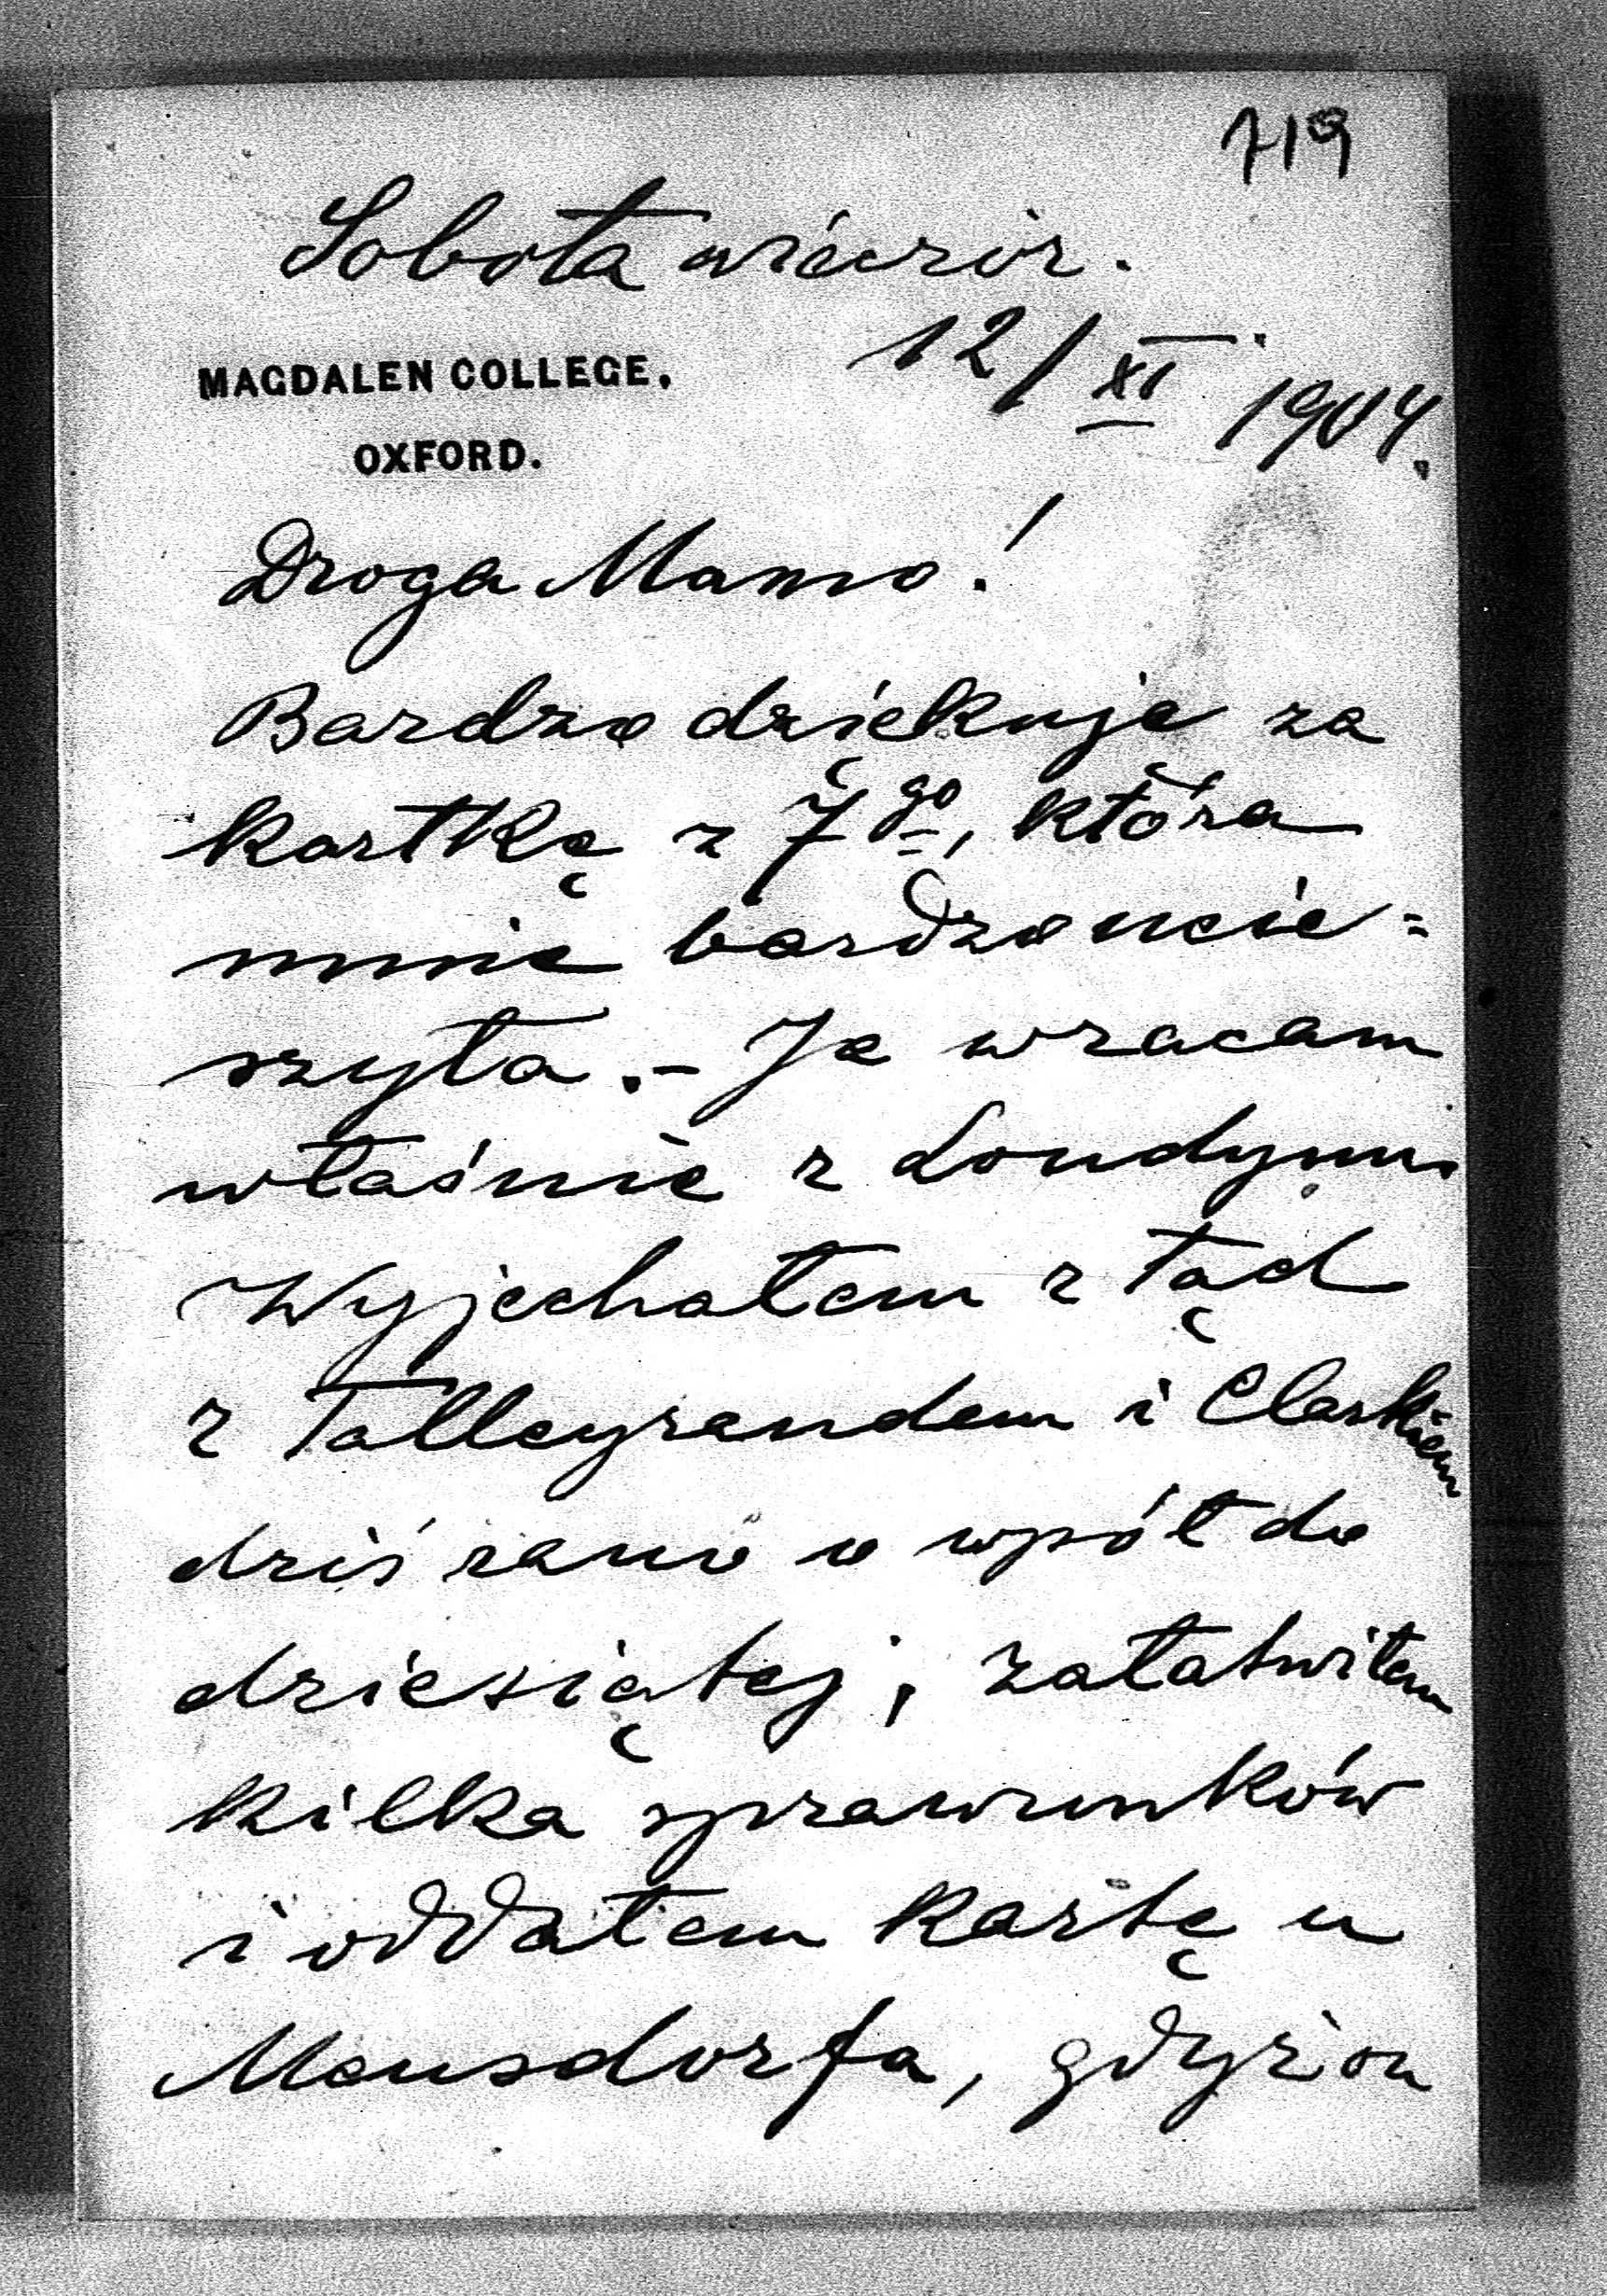 719
Sobota wieczór.
12/XI 1904.
MAGDALEN COLLEGE,
OXFORD.
Droga Mamo!
Bardzo dziękuję za
kartkę z 7go, która
mnie bardzo ucie=
szyła.- Ja wracam
właśnie z Londynu.
Wyjechałem z tąd
z Talleyrandem i Clarkiem
dziś rano o wpół do
dziesiątej; załatwiłem
kilka sprawunków
i oddałem kartę u
Mensdorfa, gdyż on